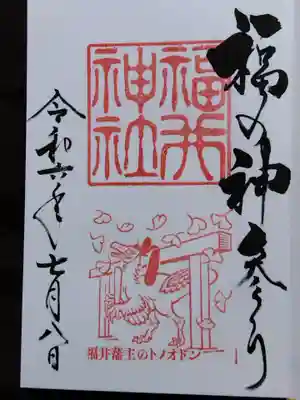 福の神参り
福井
神社
福井藩主のトノオドン
令和六年七月八日